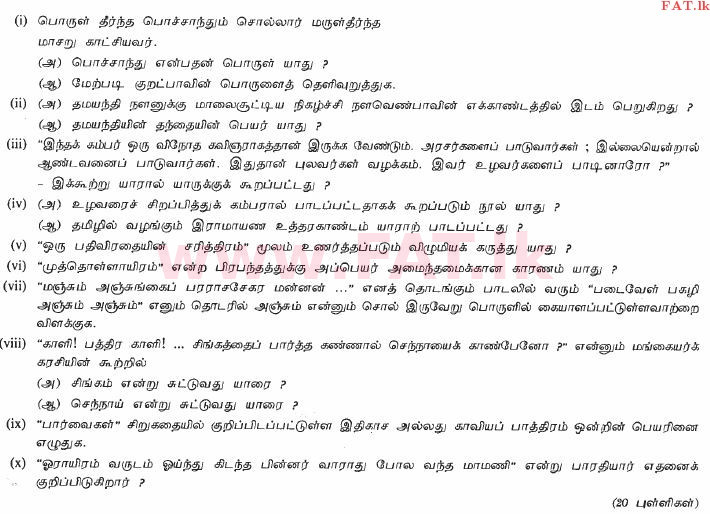 FAT.lk
(i) பொருள் தீர்ந்த பொச்சாந்தும் சொல்லார் மருள்தீர்ந்த
மாசறு காட்சியவர்.
(அ) பொச்சாந்து என்பதன் பொருள் யாது ?
(ஆ) மேற்படி குறட்பாவின் பொருளைத் தெளிவுறுத்துக.
(ii) (அ) தமயந்தி நளனுக்கு மாலைசூட்டிய நிகழ்ச்சி நளவெண்பாவின் எக்காண்டத்தில் இடம் பெறுகிறது ?
(ஆ) தமயந்தியின் தந்தையின் பெயர் யாது ?
(iii) “இந்தக் கம்பர் ஒரு விநோத கவிஞராகத்தான் இருக்க வேண்டும். அரசர்களைப் பாடுவார்கள் ; இல்லையென்றால்
ஆண்டவனைப் பாடுவார்கள். இதுதான் புலவர்கள் வழக்கம். இவர் உழவர்களைப் பாடினாரோ ?”
– இக்கூற்று யாரால் யாருக்குக் கூறப்பட்டது ?
(iv) (அ) உழவரைச் சிறப்பித்துக் கம்பரால் பாடப்பட்டதாகக் கூறப்படும் நூல் யாது ?
(ஆ) தமிழில் வழங்கும் இராமாயண உத்தரகாண்டம் யாராற் பாடப்பட்டது ?
(v) “ஒரு பதிவிரதையின் சரித்திரம்” மூலம் உணர்த்தப்படும் விழுமியக் கருத்து யாது ?
(vi) “முத்தொள்ளாயிரம்” என்ற பிரபந்தத்துக்கு அப்பெயர் அமைந்தமைக்கான காரணம் யாது ?
(vii) “மஞ்சும் அஞ்சுங்கைப் பரராசசேகர மன்னன் ...” எனத் தொடங்கும் பாடலில் வரும் “படைவேள் பகழி
அஞ்சும் அஞ்சும்” எனும் தொடரில் அஞ்சும் என்னும் சொல் இருவேறு பொருளில் கையாளப்பட்டுள்ளவாற்றை
விளக்குக.
(viii) “காளி! பத்திர காளி! ... சிங்கத்தைப் பார்த்த கண்ணால் செந்நாயைக் காண்பேனோ ?” என்னும் மங்கையர்க்
கரசியின் கூற்றில்
(அ) சிங்கம் என்று சுட்டுவது யாரை ?
(ஆ) செந்நாய் என்று சுட்டுவது யாரை ?
(ix) “பார்வைகள்” சிறுகதையில் குறிப்பிடப்பட்டுள்ள இதிகாச அல்லது காவியப் பாத்திரம் ஒன்றின் பெயரினை
எழுதுக.
(x) “ஓராயிரம் வருடம் ஓய்ந்து கிடந்த பின்னர் வாராது போல வந்த மாமணி” என்று பாரதியார் எதனைக்
குறிப்பிடுகிறார் ?
(20 புள்ளிகள்)
www.FAT.lk